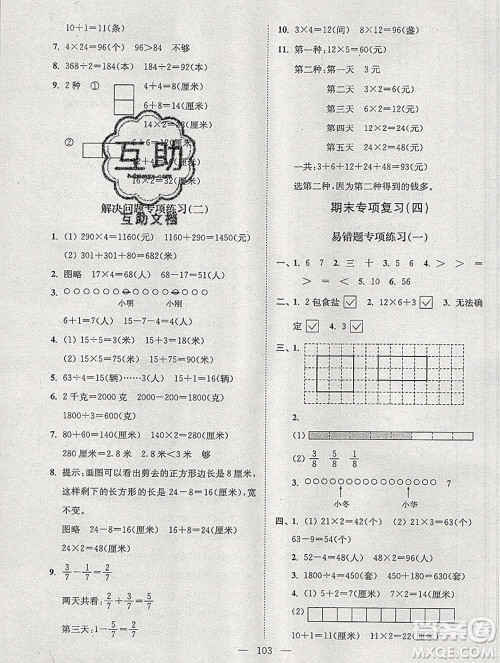 10+1=11(条)
7. 4×24=96(个) 96>84 不够
8. 368÷2=184(本) 184÷2=92(本)
9. 2种 ① 4+4=8(厘米)
6+8=14(厘米)
14×2=28(厘米)
②
16×2=32(厘米)
互助
互助文档
解决问题专项练习(二)
1. (1) 290×4=1160(元) 1160(元)
(2) 301+301=602(米)
301×2+80=682(米)
2. 图略 17×4=68(人) 68÷17=4
3.
小明 小刚
6+1=7(人) 15-7=8(人)
4. (1) 15÷5=3(米)
(2) 15÷3=5(米)
5. 63÷4=15(辆)……3(人)
15+1=16(辆)
6. 2千克=2000克 2000-200=1800(克)
1800÷3=600(克)
7. 80+60=140(米) 140×2=280(米)
280厘米=2.8米 2.8米<3米 够
8. 提示:画图可以看出剪去的正方形边长是8厘米,
这样剩下的长方形的长是24-8=16(厘米),宽
不变。
图略 24-8=16(厘米) 16+8=24(厘米)
24×2=48(厘米)
9. 3/7-1/7=2/7
两天共看:2/7+3/7=5/7
10. 3×4=12(间) 8×12=96(盏)
11. 第一种:12×5=60(元)
第二种:第一天 3元
第二天 3×2=6(元)
第三天 6×2=12(元)
第四天 12×2=24(元)
第五天 24×2=48(元)
选第二种,因为第二种得到的钱多。
期末专项复习(四)
易错题专项练习(一)
一、1. 6 7 2. 三 十 3. 5 4. > >
= < 5. 10 6. 56
二、1. 2包食盐☑ 2. 12×6+3☑ 3. 无法确
定☑ 4. 3☑
三、1.
2.
(2) 3/8 5/8 3. 1/5
3.
小冬 小华
四、1. (1) 21×2=42(个) (2) 21×3=63(个)
63-9=54(厘米)
2. 52-4=48(人) 48÷2=24(人)
3. 1800÷4=450(套) 450-430=20(套)
4. (1)
(2) 8+1+1+1=11(厘米) 11×2=22(厘米)
103
答案圈
MXQE.COM